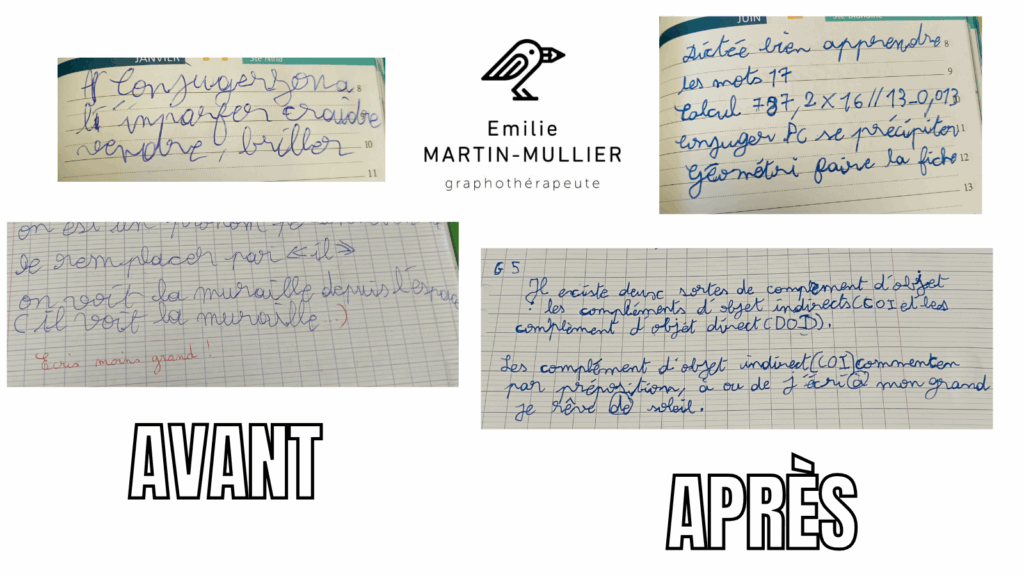 JANVIER Ste Nina
# Conjuger zona 8
inparfer craidre
vendre, briller 10
11
on est un pronom je
le remplacer par « il »
on voit la muraille depuis l'espace
( il voit la muraille )
Ecris moins grand !
AVANT
Emilie
MARTIN-MULLIER
graphothérapeute
JUIN Ste Blandine
Dictée bien apprendre 8
les mots 17 9
Calcul 787,2 X 16 // 13_0,013 10
conjuger PC se précipiter 11
Géométri faire la fiche 12
13
G 5
Il existe deux sortes de complement d'objet
: les compléments d'objet indirects (COI et les
complèment d'objet direct (DOD).
Les complément d'objet indirect (COI) commencen
par préposition, à ou de J'écri à mon grand
je rêve de soleil.
APRÈS